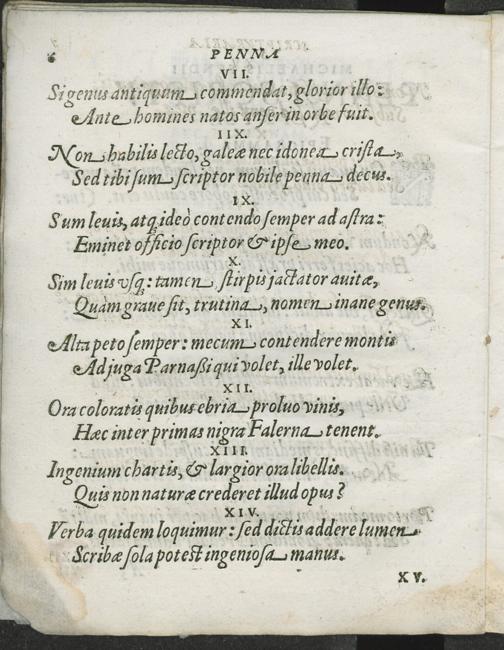 6
PENNA
VII.
Si genus antiquum commendat, glorior illo:
Ante homines natos anser in orbe fuit.
IIX.
Non habilis lecto, galeæ nec idonea cristæ,
Sed tibi sum scriptor nobile penna decus.
IX.
Sum leuis, atq; ideò contendo semper ad astra:
Eminet officio scriptor & ipse meo.
X.
Sim leuis vsq;: tamen stirpis jactator auitæ,
Quàm graue sit, trutina, nomen inane genus.
XI.
Alta peto semper: mecum contendere montis
Ad juga Parnaßi qui volet, ille volet.
XII.
Ora coloratis quibus ebria proluo vinis,
Hæc inter primas nigra Falerna tenent.
XIII.
Ingenium chartis, & largior ora libellis.
Quis non naturæ crederet illud opus?
XIV.
Verba quidem loquimur: sed dictis addere lumen
Scribæ sola potest ingeniosa manus.
XV.